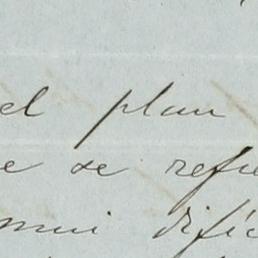 el plan
e se refie
mui difíc